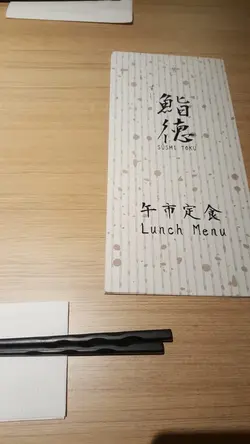 鮨德
SUSHI TOKU
午市定食
Lunch Menu